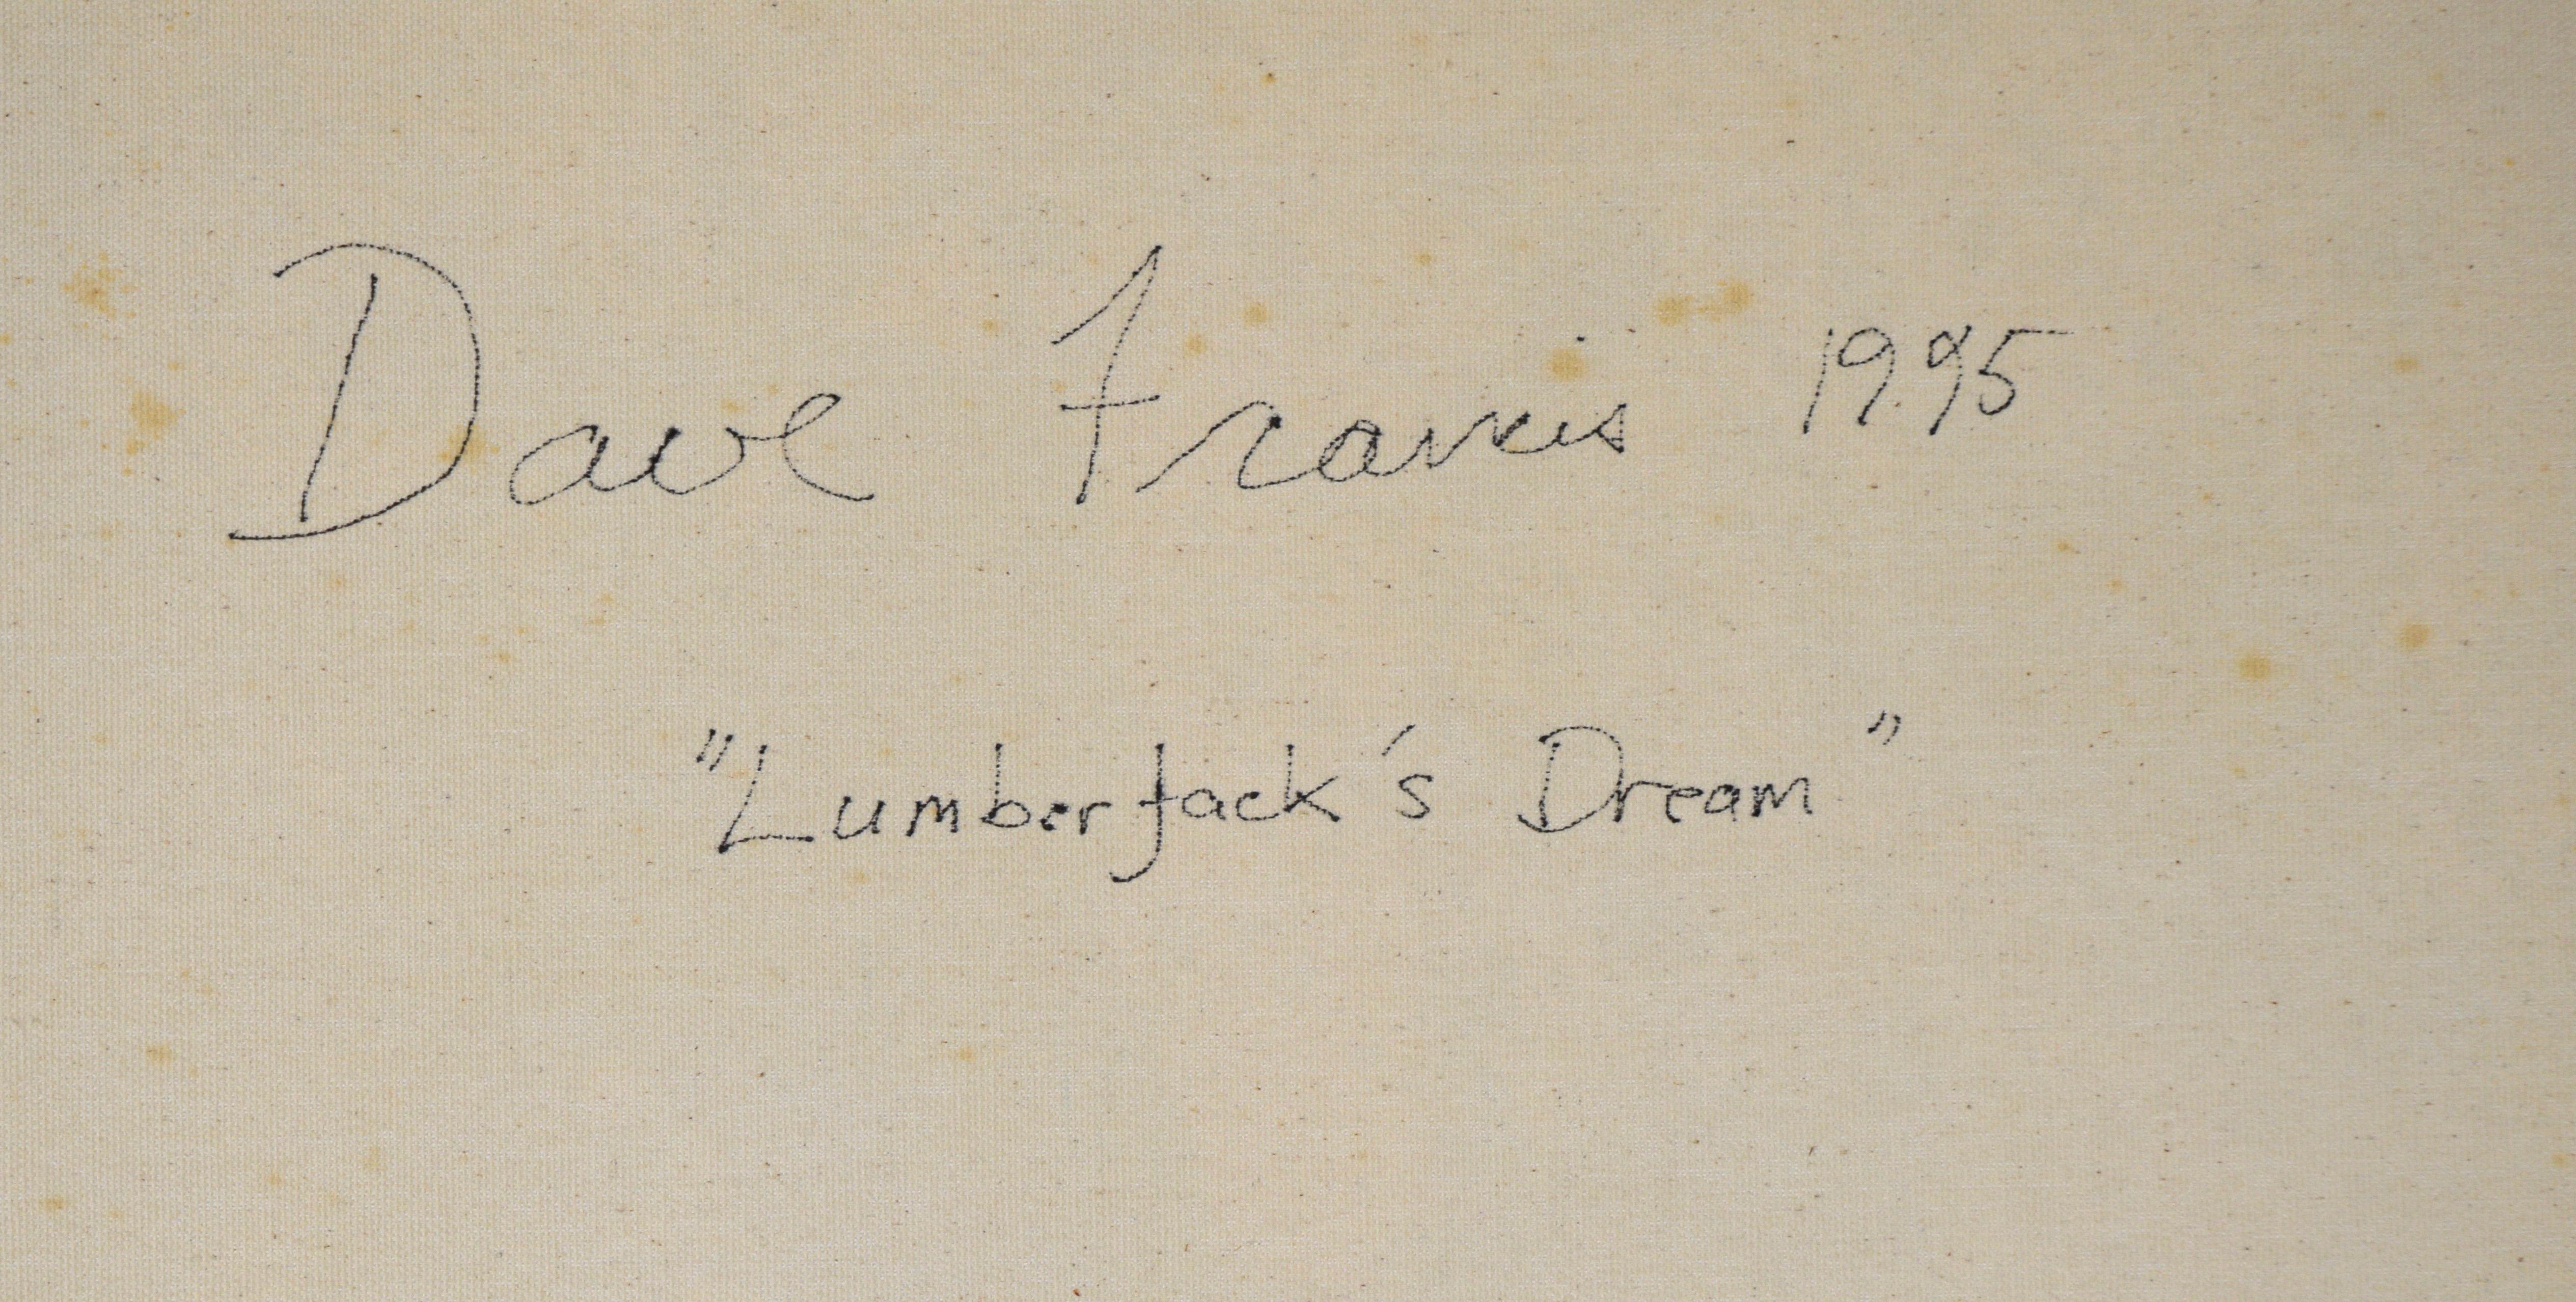 Dave Francis 1995
"Lumberjack's Dream"